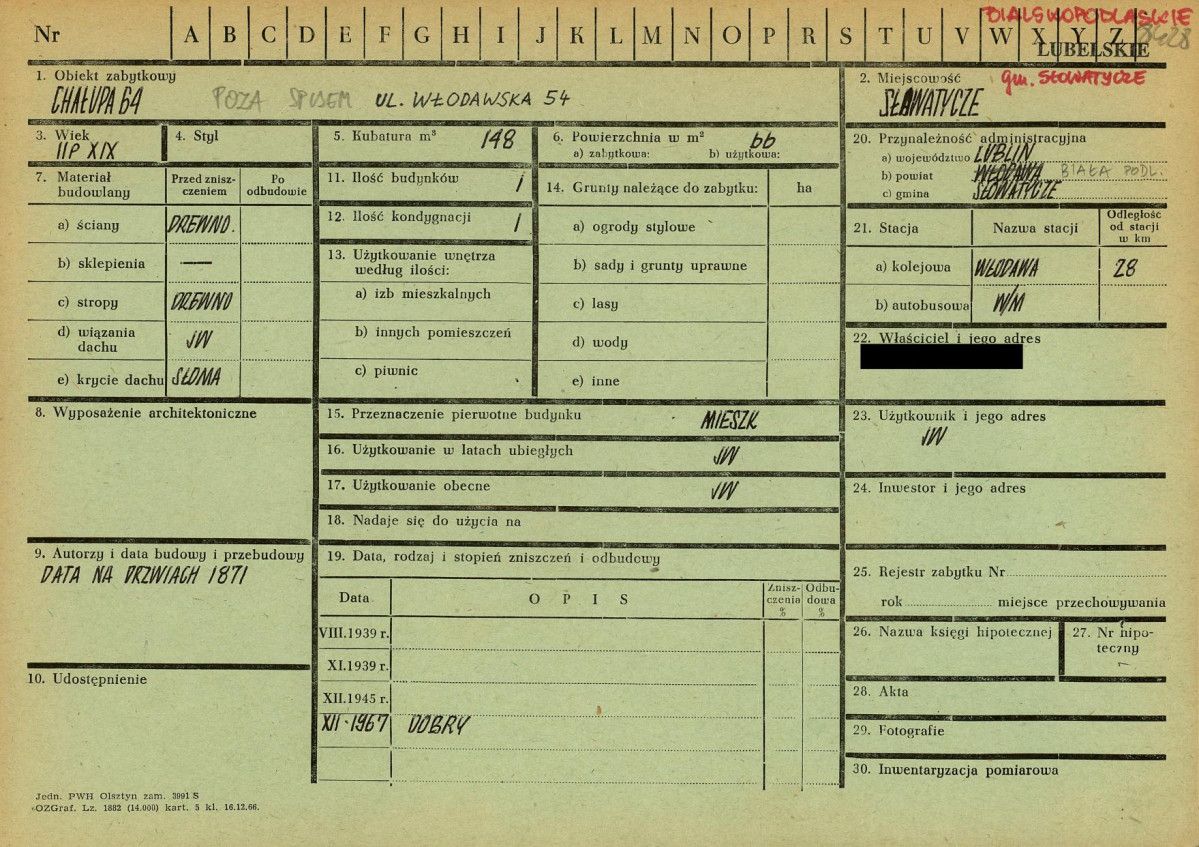 Nr A B C D E F G H I J K L M N O P R S T U V W X Y Z
BIALSKOPODLASKIE
8428
LUBELSKIE
1. Obiekt zabytkowy
CHAŁUPA 64 POZA SPISEM UL. WŁODAWSKA 54
2. Miejscowość gm. SŁOWATYCZE
SŁAWATYCZE
3. Wiek
IIP XIX
4. Styl
5. Kubatura m³ 148
6. Powierzchnia w m² 66
a) zabytkowa: b) użytkowa:
20. Przynależność administracyjna
a) województwo LUBLIN
b) powiat WŁODAWA BIAŁA PODL.
c) gmina SŁOWATYCZE
7. Materiał budowlany
Przed zniszczeniem
Po odbudowie
a) ściany DREWNO.
b) sklepienia —
c) stropy DREWNO
d) wiązania dachu JW
e) krycie dachu SŁOMA
11. Ilość budynków 1
12. Ilość kondygnacji 1
13. Użytkowanie wnętrza według ilości:
a) izb mieszkalnych
b) innych pomieszczeń
c) piwnic
14. Grunty należące do zabytku: ha
a) ogrody stylowe
b) sady i grunty uprawne
c) lasy
d) wody
e) inne
21. Stacja Nazwa stacji Odległość od stacji w km
a) kolejowa WŁODAWA 28
b) autobusowa W/M
22. Właściciel i jego adres
8. Wyposażenie architektoniczne
15. Przeznaczenie pierwotne budynku MIESZK
16. Użytkowanie w latach ubiegłych JW
17. Użytkowanie obecne JW
18. Nadaje się do użycia na
23. Użytkownik i jego adres
JW
24. Inwestor i jego adres
9. Autorzy i data budowy i przebudowy
DATA NA DRZWIACH 1871
10. Udostępnienie
19. Data, rodzaj i stopień zniszczeń i odbudowy
Data OPIS Zniszczenia % Odbudowa %
VIII.1939 r.
XI.1939 r.
XII.1945 r.
XII-1967 DOBRY
25. Rejestr zabytku Nr
rok miejsce przechowywania
26. Nazwa księgi hipotecznej
27. Nr hipoteczny
28. Akta
29. Fotografie
30. Inwentaryzacja pomiarowa
Jedn. PWH Olsztyn zam. 3991 S
OZGraf. Lz. 1882 (14.000) kart. 5 kl. 16.12.66.